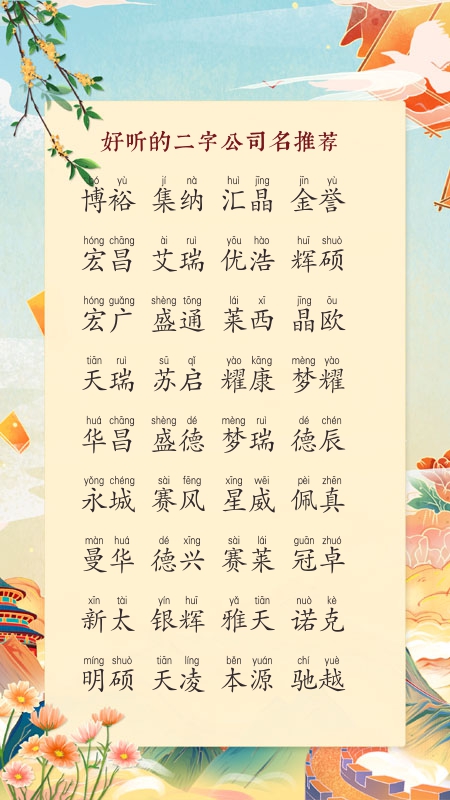 好听的二字公司名推荐
bó yù jí nà huì jīng jīn yù
博裕 集纳 汇晶 金誉
hóng chāng ài ruì yōu hào huī shuò
宏昌 艾瑞 优浩 辉硕
hóng guǎng shèng tōng lái xī jīng ōu
宏广 盛通 莱西 晶欧
tiān ruì sū qǐ yào kāng mèng yào
天瑞 苏启 耀康 梦耀
huá chāng shèng dé mèng ruì dé chén
华昌 盛德 梦瑞 德辰
yǒng chéng sài fēng xīng wēi pèi zhēn
永城 赛风 星威 佩真
màn huá dé xīng sài lái guān zhuó
曼华 德兴 赛莱 冠卓
xīn tài yín huī yǎ tiān nuò kè
新太 银辉 雅天 诺克
míng shuò tiān líng běn yuán chí yuè
明硕 天凌 本源 驰越